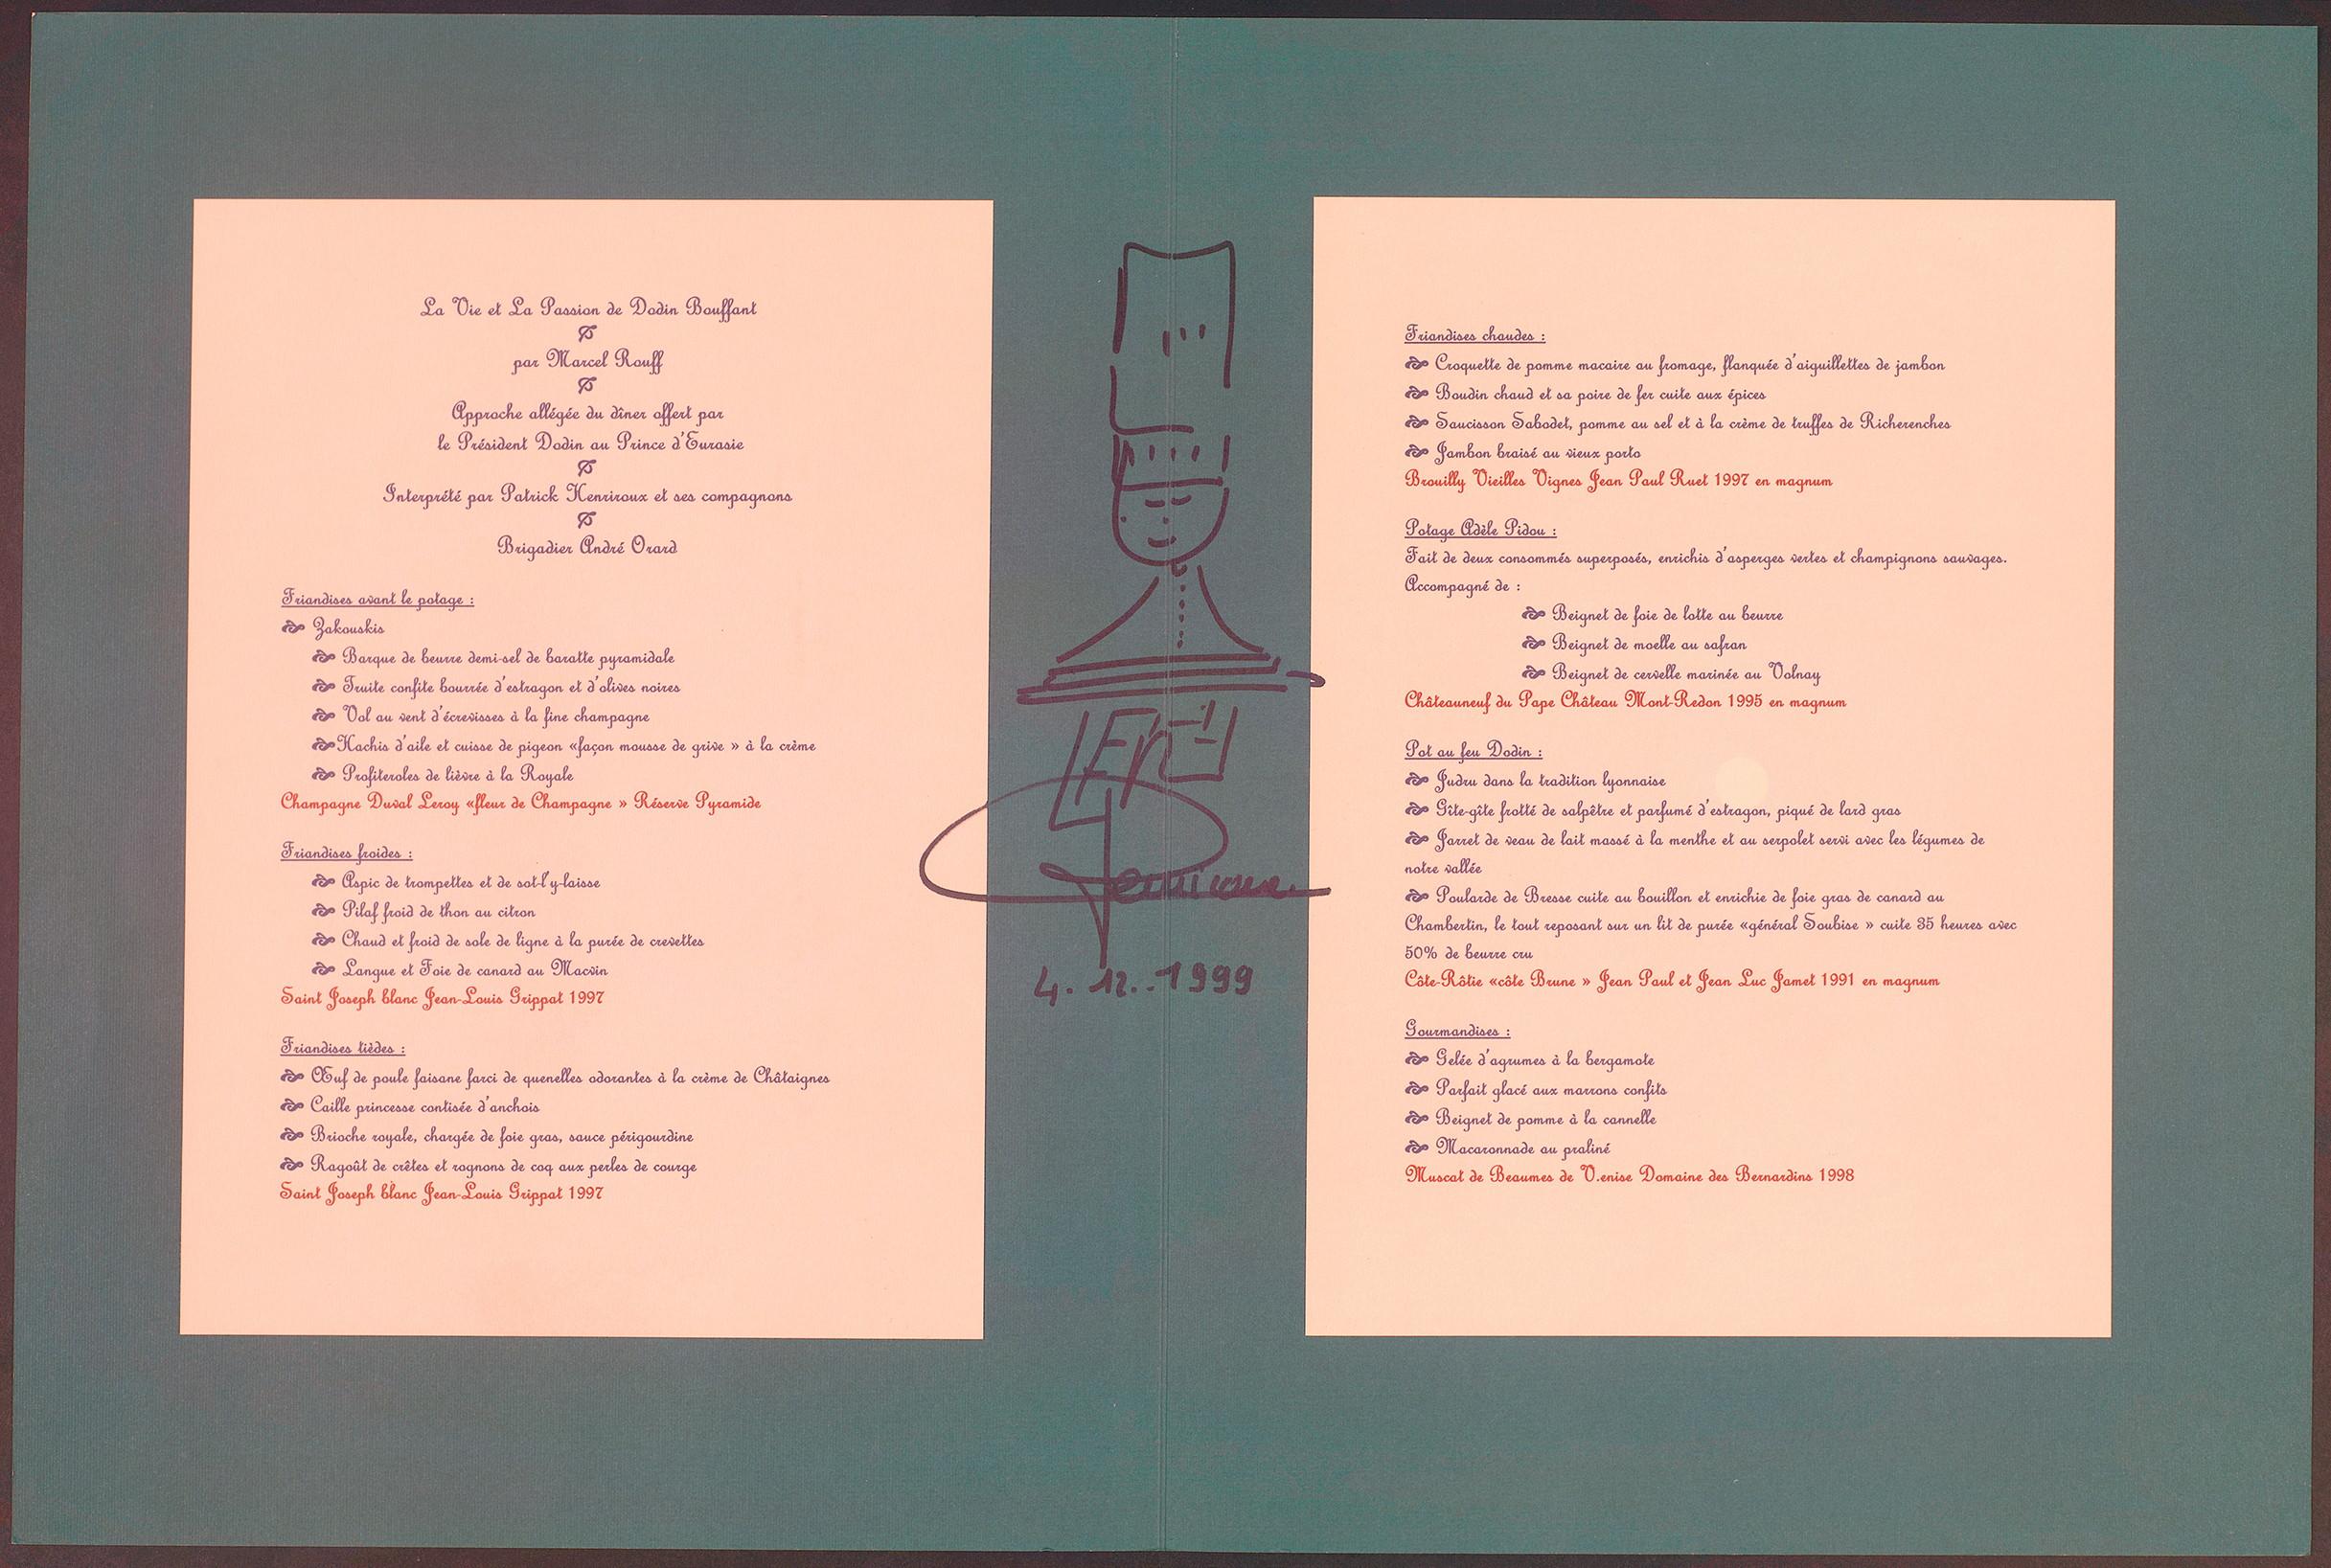 La Vie et La Passion de Dodin Bouffant
par Marcel Rouff
Approche allégée du dîner offert par
le Président Dodin au Prince d'Eurasie
Interprété par Patrick Henriroux et ses compagnons
Brigadier André Orard
Friandises avant le potage :
Zakouskis
Barque de beurre demi-sel de baratte pyramidale
Truite confite bourrée d'estragon et d'olives noires
Vol au vent d'écrevisses à la fine champagne
Hachis d'aile et cuisse de pigeon «façon mousse de grive » à la crème
Profiteroles de lièvre à la Royale
Champagne Duval Leroy «fleur de Champagne » Réserve Pyramide
Friandises froides :
Aspic de trompettes et de sot-l'y-laisse
Pilaf froid de thon au citron
Chaud et froid de sole de ligne à la purée de crevettes
Langue et Foie de canard au Macvin
Saint Joseph blanc Jean-Louis Grippat 1997
Friandises tièdes :
Œuf de poule faisane farci de quenelles odorantes à la crème de Châtaignes
Caille princesse contisée d'anchois
Brioche royale, chargée de foie gras, sauce périgourdine
Ragoût de crêtes et rognons de coq aux perles de courge
Saint Joseph blanc Jean-Louis Grippat 1997
4.12..1999
Friandises chaudes :
Croquette de pomme macaire au fromage, flanquée d'aiguillettes de jambon
Boudin chaud et sa poire de fer cuite aux épices
Saucisson Sabodet, pomme au sel et à la crème de truffes de Richerenches
Jambon braisé au vieux porto
Brouilly Vieilles Vignes Jean Paul Ruet 1997 en magnum
Potage Adèle Pidou :
Fait de deux consommés superposés, enrichis d'asperges vertes et champignons sauvages.
Accompagné de :
Beignet de foie de lotte au beurre
Beignet de moelle au safran
Beignet de cervelle marinée au Volnay
Châteauneuf du Pape Château Mont-Redon 1995 en magnum
Pot au feu Dodin :
Judru dans la tradition lyonnaise
Gîte-gîte frotté de salpêtre et parfumé d'estragon, piqué de lard gras
Jarret de veau de lait massé à la menthe et au serpolet servi avec les légumes de
notre vallée
Poularde de Bresse cuite au bouillon et enrichie de foie gras de canard au
Chambertin, le tout reposant sur un lit de purée «général Soubise » cuite 35 heures avec
50% de beurre cru
Côte-Rôtie «côte Brune » Jean Paul et Jean Luc Jamet 1991 en magnum
Gourmandises :
Gelée d'agrumes à la bergamote
Parfait glacé aux marrons confits
Beignet de pomme à la cannelle
Macaronnade au praliné
Muscat de Beaumes de V.enise Domaine des Bernardins 1998